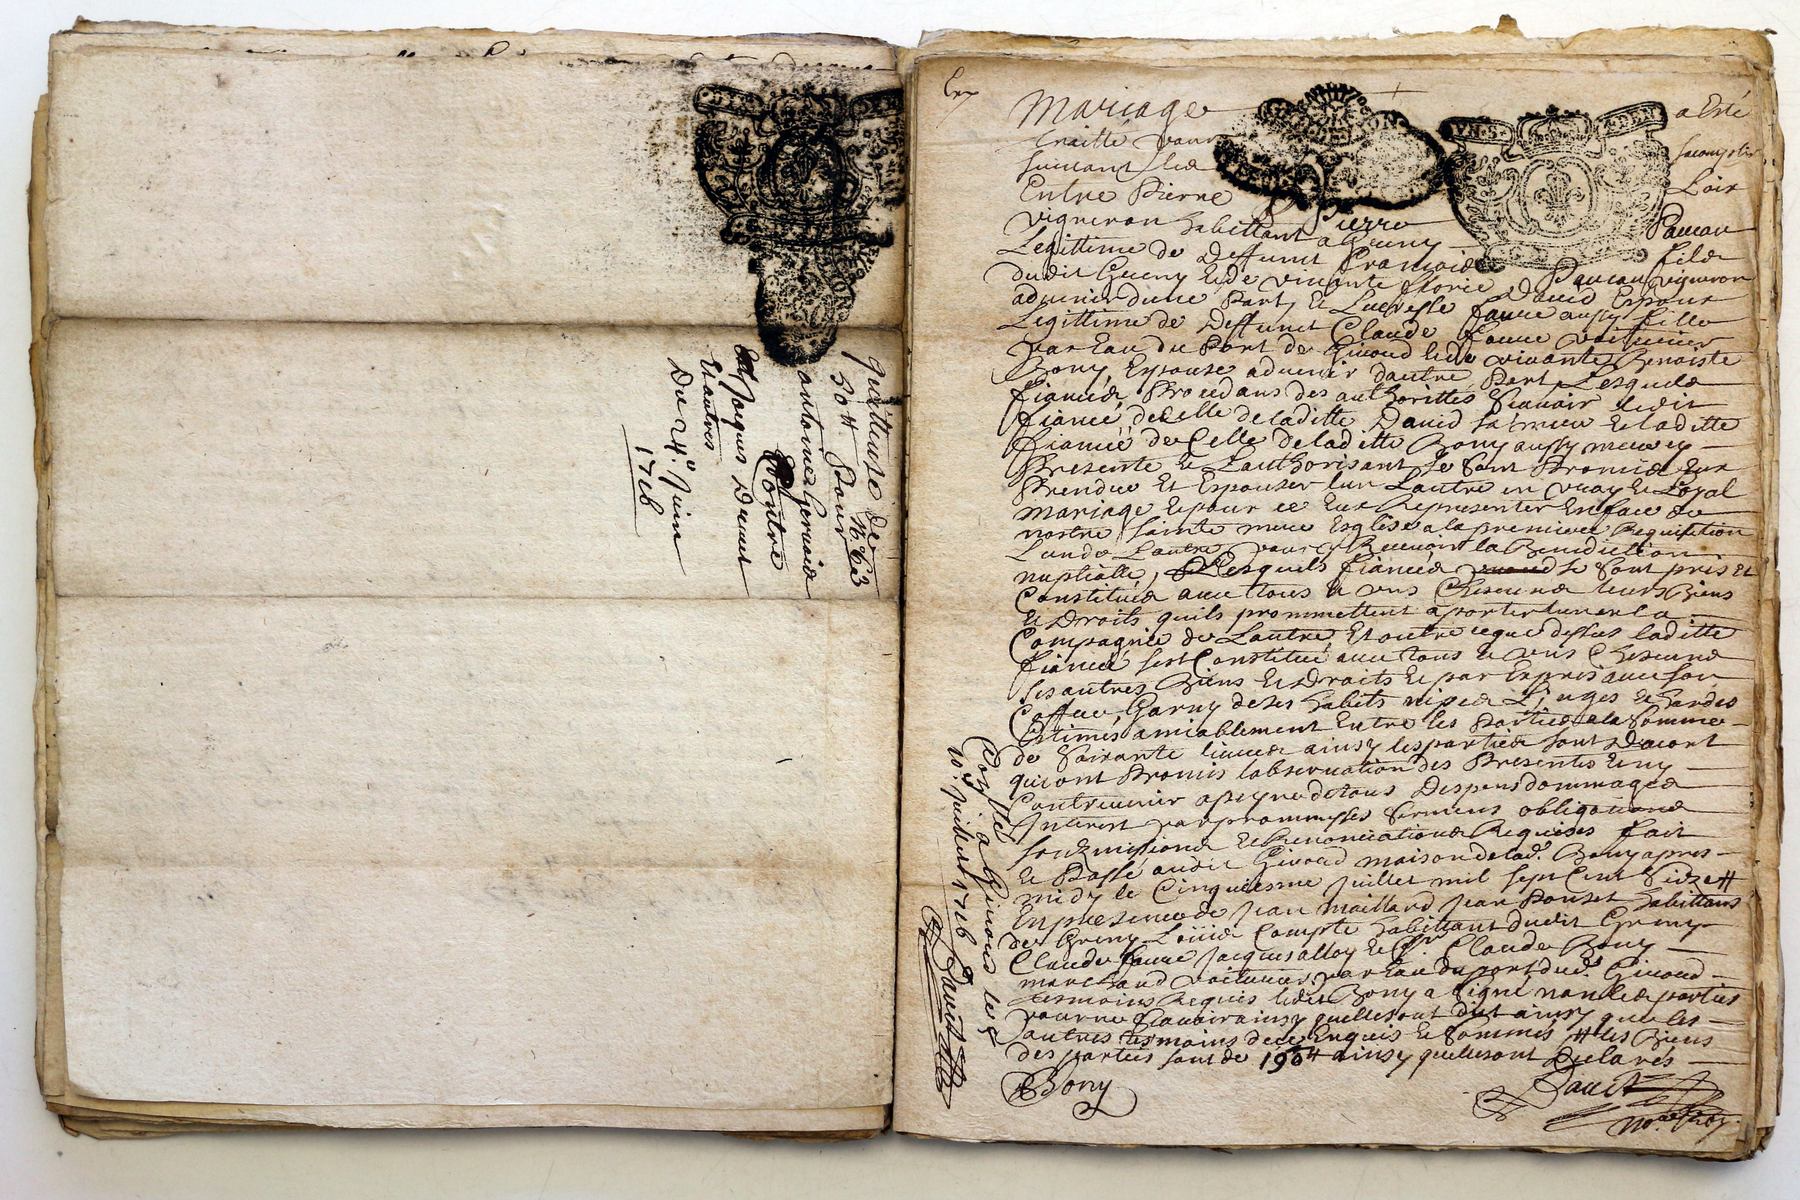 quittence de
30ᵗᵗ pour
antoine Gervaid
Contre
Jaques Decuret
Et autres
Du 24.ᵉ Juin
1716
Mariage a Esté
traitté pour
suivant
Entre Pierre
vigneron habittant a Griny
Legittime de deffunt François fils
dudit Griny Et de vivante David Espoux
advenir d'une part Et Lucresse faure aussy fille
Legittime de deffunt Claude faure voiturier
par Eau du Port de Givord Et de vivante Benoiste
Bony Espouse advenir d'autre part Lesquels
fiancés Procedans des authorittés scavoir ledit
fiancé de Celle de laditte David sa mere Et laditte
fiancée de Celle de laditte Bony aussy mere icy
Presente Et L'authorisant se sont Promis Eux
Prendre Et Espouser l'un L'autre en vray Et Loyal
mariage Et pour ce Eux Representer En face de
nostre sainte mere Esglise a la premiere Requisition
L'un de L'autre pour y Recevoir la Benediction
nuptialle, Lesquels fiancés se sont pris Et
Constitués avec tous Et uns Chescuns leurs Biens
Et Droits quils prommettent aporter l'un en la
Compagnie de L'autre Et outre ce que dessus laditte
fiancée s'est Constituée avec tous Et uns Chescuns
ses autres Biens Et Droits Et par Expres avec son
Coffre Garny de ses habits nipes Linges Et hardes
Estimés amiablement Entre les Parties a la somme
de Soixante livres ainsy les parties sont D'acort
qui ont Promis l'observation des Presentes Et n'y
Contrevenir a peyne de tous Despens dommages
Interest par prommesses sermens obligations
soubzmissions Et Renonciations Requises fait
Et Passé audit Givord maison de lad.ᵉ Bony apres
midy le Cinquiesme Juillet mil sept Cent Seize
En presence de Jean Maillard Jean Ponset habittans
de Griny Loüis Compte habittant dudit Griny
Claude faure Jacques alloy Et Sʳ Claude Bony
marchand voiturier par Eau du port dud.ᵗ Givord
tesmoins Requis ledit Bony a Signé non les parties
pour ne scavoir ainsy quelles ont dit ainsy que les
autres tesmoins de ce Enquis Et sommés les Biens
des parties sont de 190ᵗᵗ ainsy quelles ont Declarés
Bony
Dauit
noʳᵉ Roy.
Conˡˡᵉ a Givord le
10.ᵉ Juillet 1716
Dauit